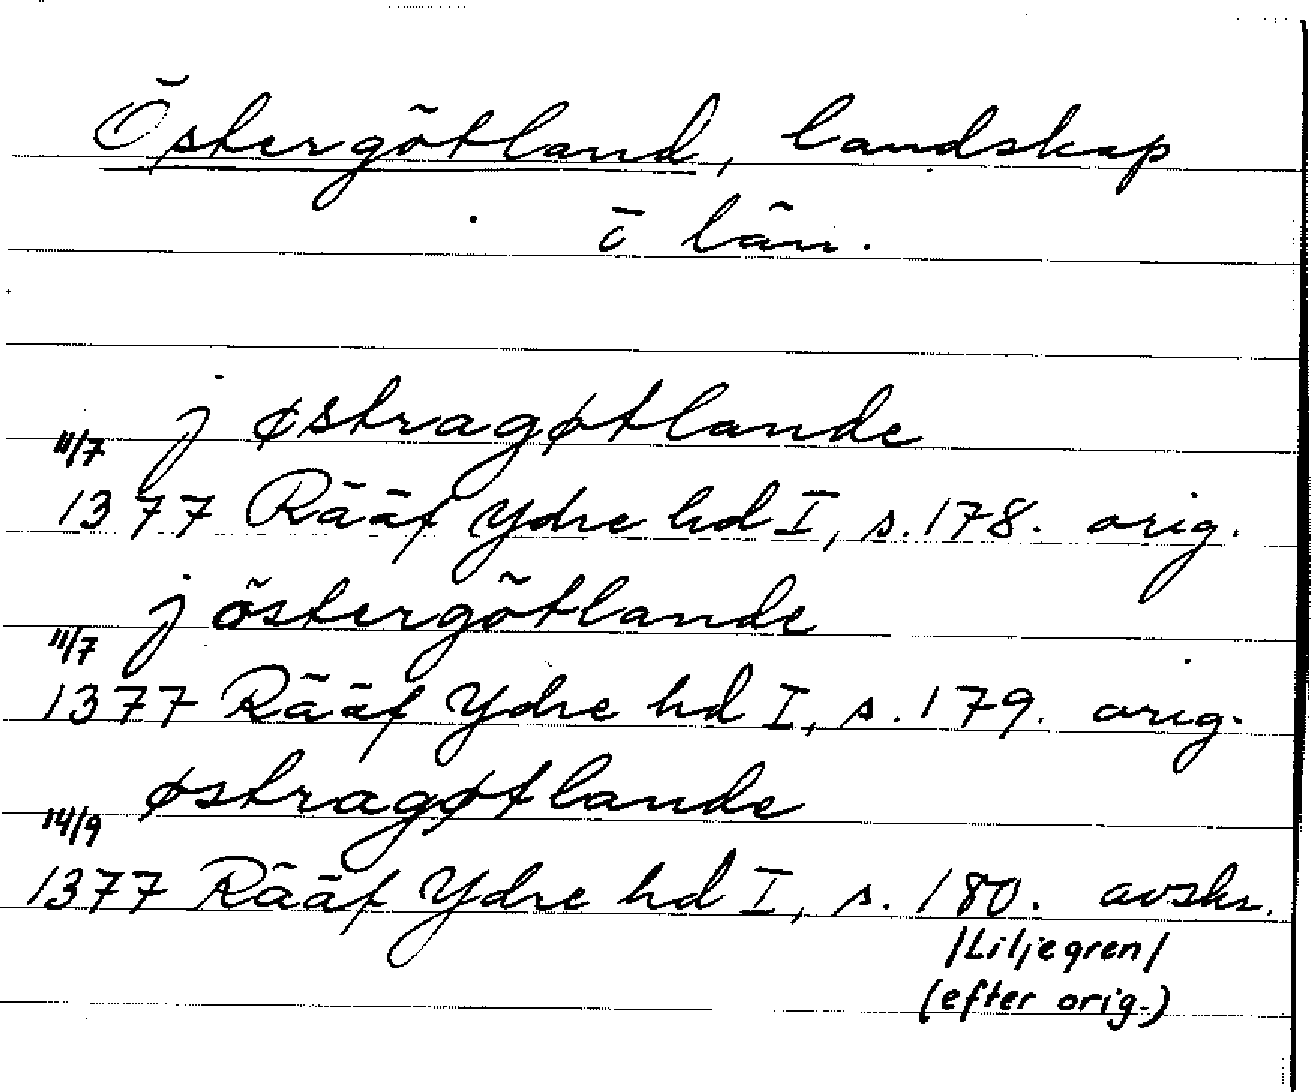 Östergötland, landskap
o län.
j østragøtlande
11/7
1377 Rääf Ydre hd I, s. 178. orig.
j östergötlande
11/7
1377 Rääf Ydre hd I, s. 179. orig.
østragøtlande
14/9
1377 Rääf Ydre hd I, s. 180. avskr.
/Liljegren/
(efter orig.)